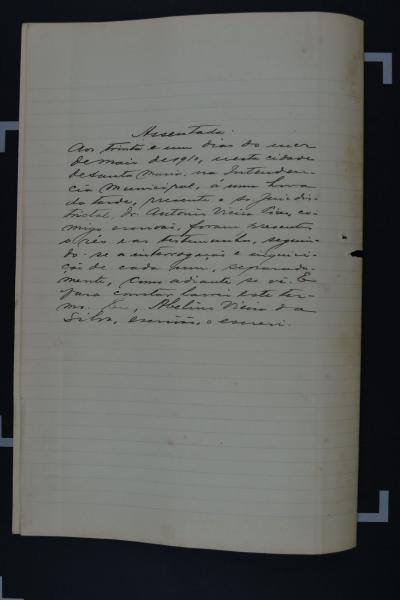 Assentada.
Aos trinta e um dias do mez
de maio de 1910, nesta cidade
de Santa Maria, na Intenden-
cia Municipal, á uma hora
da tarde, presente o dr. Juiz dis-
trictal, dr. Antonio Vieira Pires, co-
migo escrivão, foram presentes
o réo e as testemunhas, seguin-
do-se a interrogação e inquiri-
ção de cada um, separada-
mente, como adiante se vê. E
para constar lavrei este ter-
mo. Eu, Vieira da
Silva, escrivão, o escrevi.